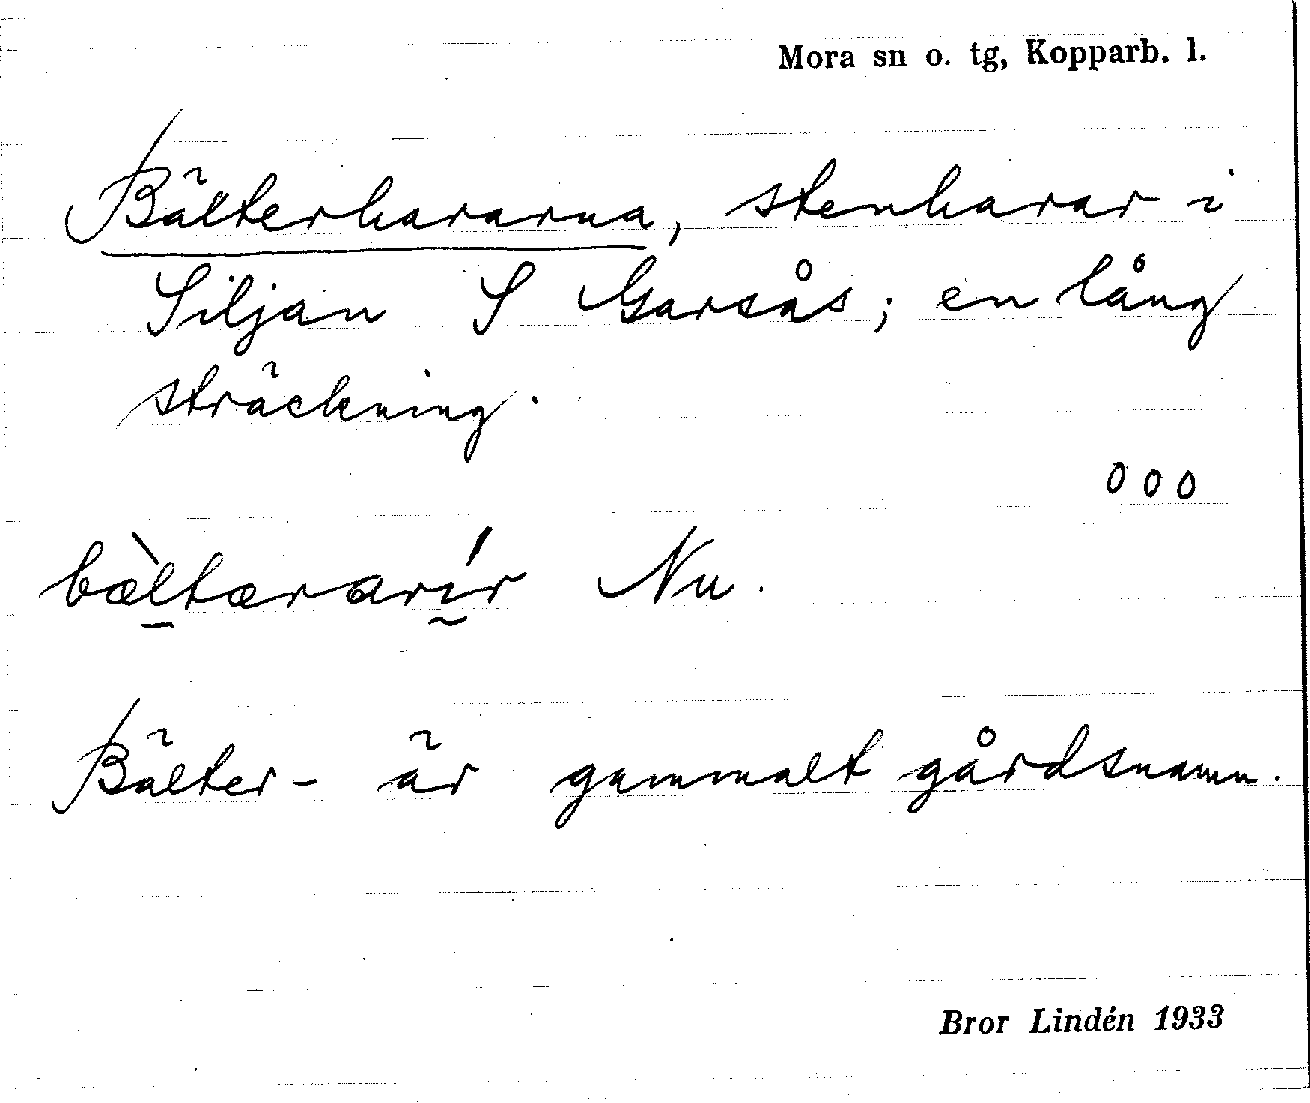 Mora sn o. tg, Kopparb. l.
Bälterhararna, stenharar i
Siljan S Garsås; en lång
sträckning.
000
bæ̀ltærarír Nu.
Bälter- är gammalt gårdsnamn.
Bror Lindén 1933